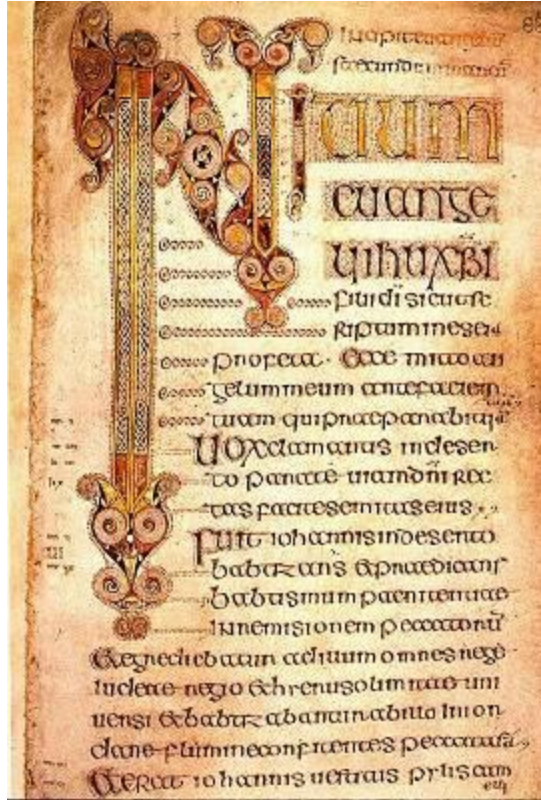 INITIUM
EUANGE
LII IHU XPI
filii di sicut sc
riptum in esei
profeta · Ecce mitto an
gelum meum ante faciem
tuam qui praeparabit
Uox clamantis in deser
to parate uiam dni rec
tas facite semitas eius
Fuit iohannis in deserto
babtizans & praedicans
babtismum paenitentiae
in remisionem peccatorum
& egrediebatur ad illum omnes
iudeae regio & hierusolimitae uni
uersi & babtizabantur ab illo in ior
dane flumine confitentes peccata sua
& erat iohannis uestitus pylis cam